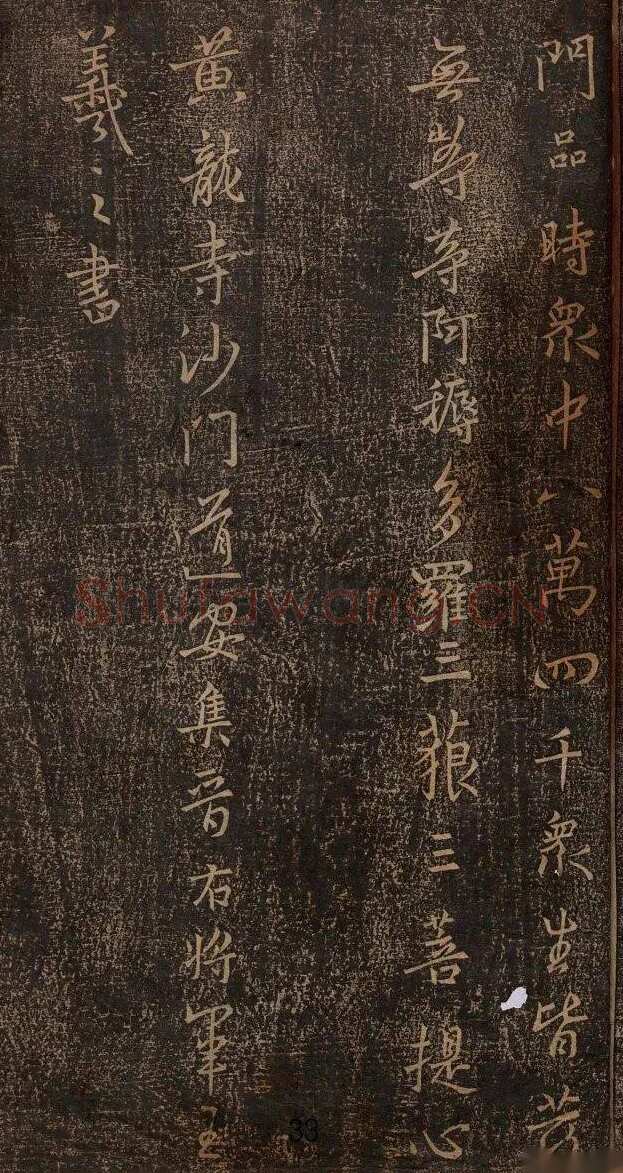 門品時眾中八萬四千眾生皆發
無等等阿耨多羅三藐三菩提心
黃龍寺沙門道安集晉右將軍王
羲之書
Shufawang.CN
33